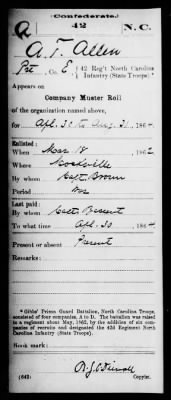 Confederate.
42 N.C.
A. T. Allen
Pvt, Co. E, 42 Reg't North Carolina
Infantry (State Troops).*
Appears on
Company Muster Roll
of the organization named above,
for Apl. 30 to Aug. 31, 1864.
Enlisted:
When Mar 18, 1862
Where
By whom Capt. Brown
Period War
Last paid:
By whom Capt.
To what time Apl. 30, 1864.
Present or absent Present
Remarks:
* Gibbs' Prison Guard Battalion, North Carolina Troops,
consisted of four companies, A to D. The battalion was raised
to a regiment about May, 1862, by the addition of six com-
panies of recruits and designated the 42d Regiment North
Carolina Infantry (State Troops).
Book mark:
(642)
Copyist.